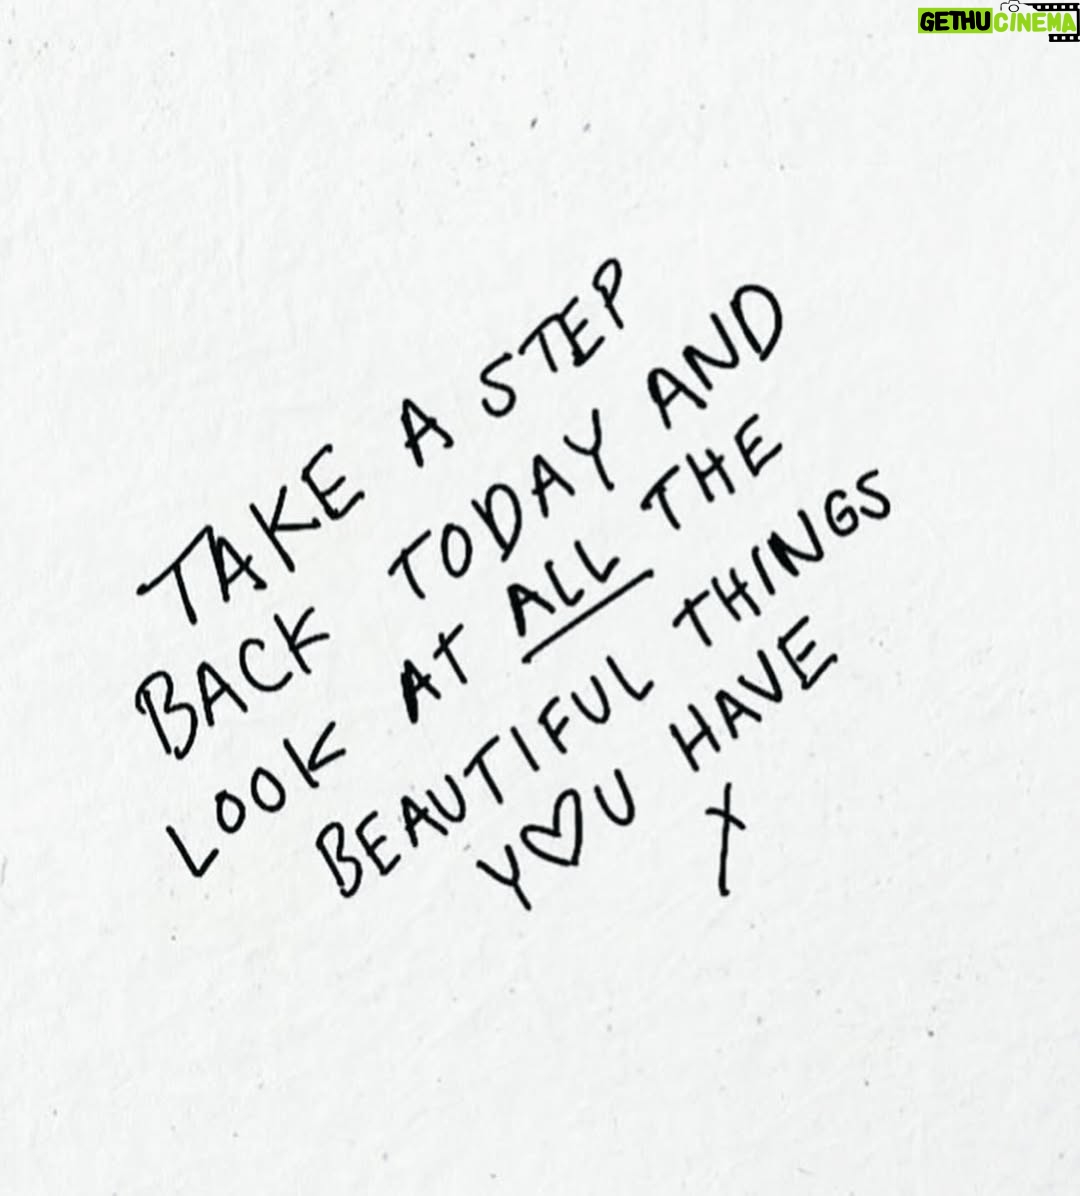 GETHUCINEMA
TAKE A STEP
BACK TODAY AND
LOOK AT ALL THE
BEAUTIFUL THINGS
Y♡U HAVE
X